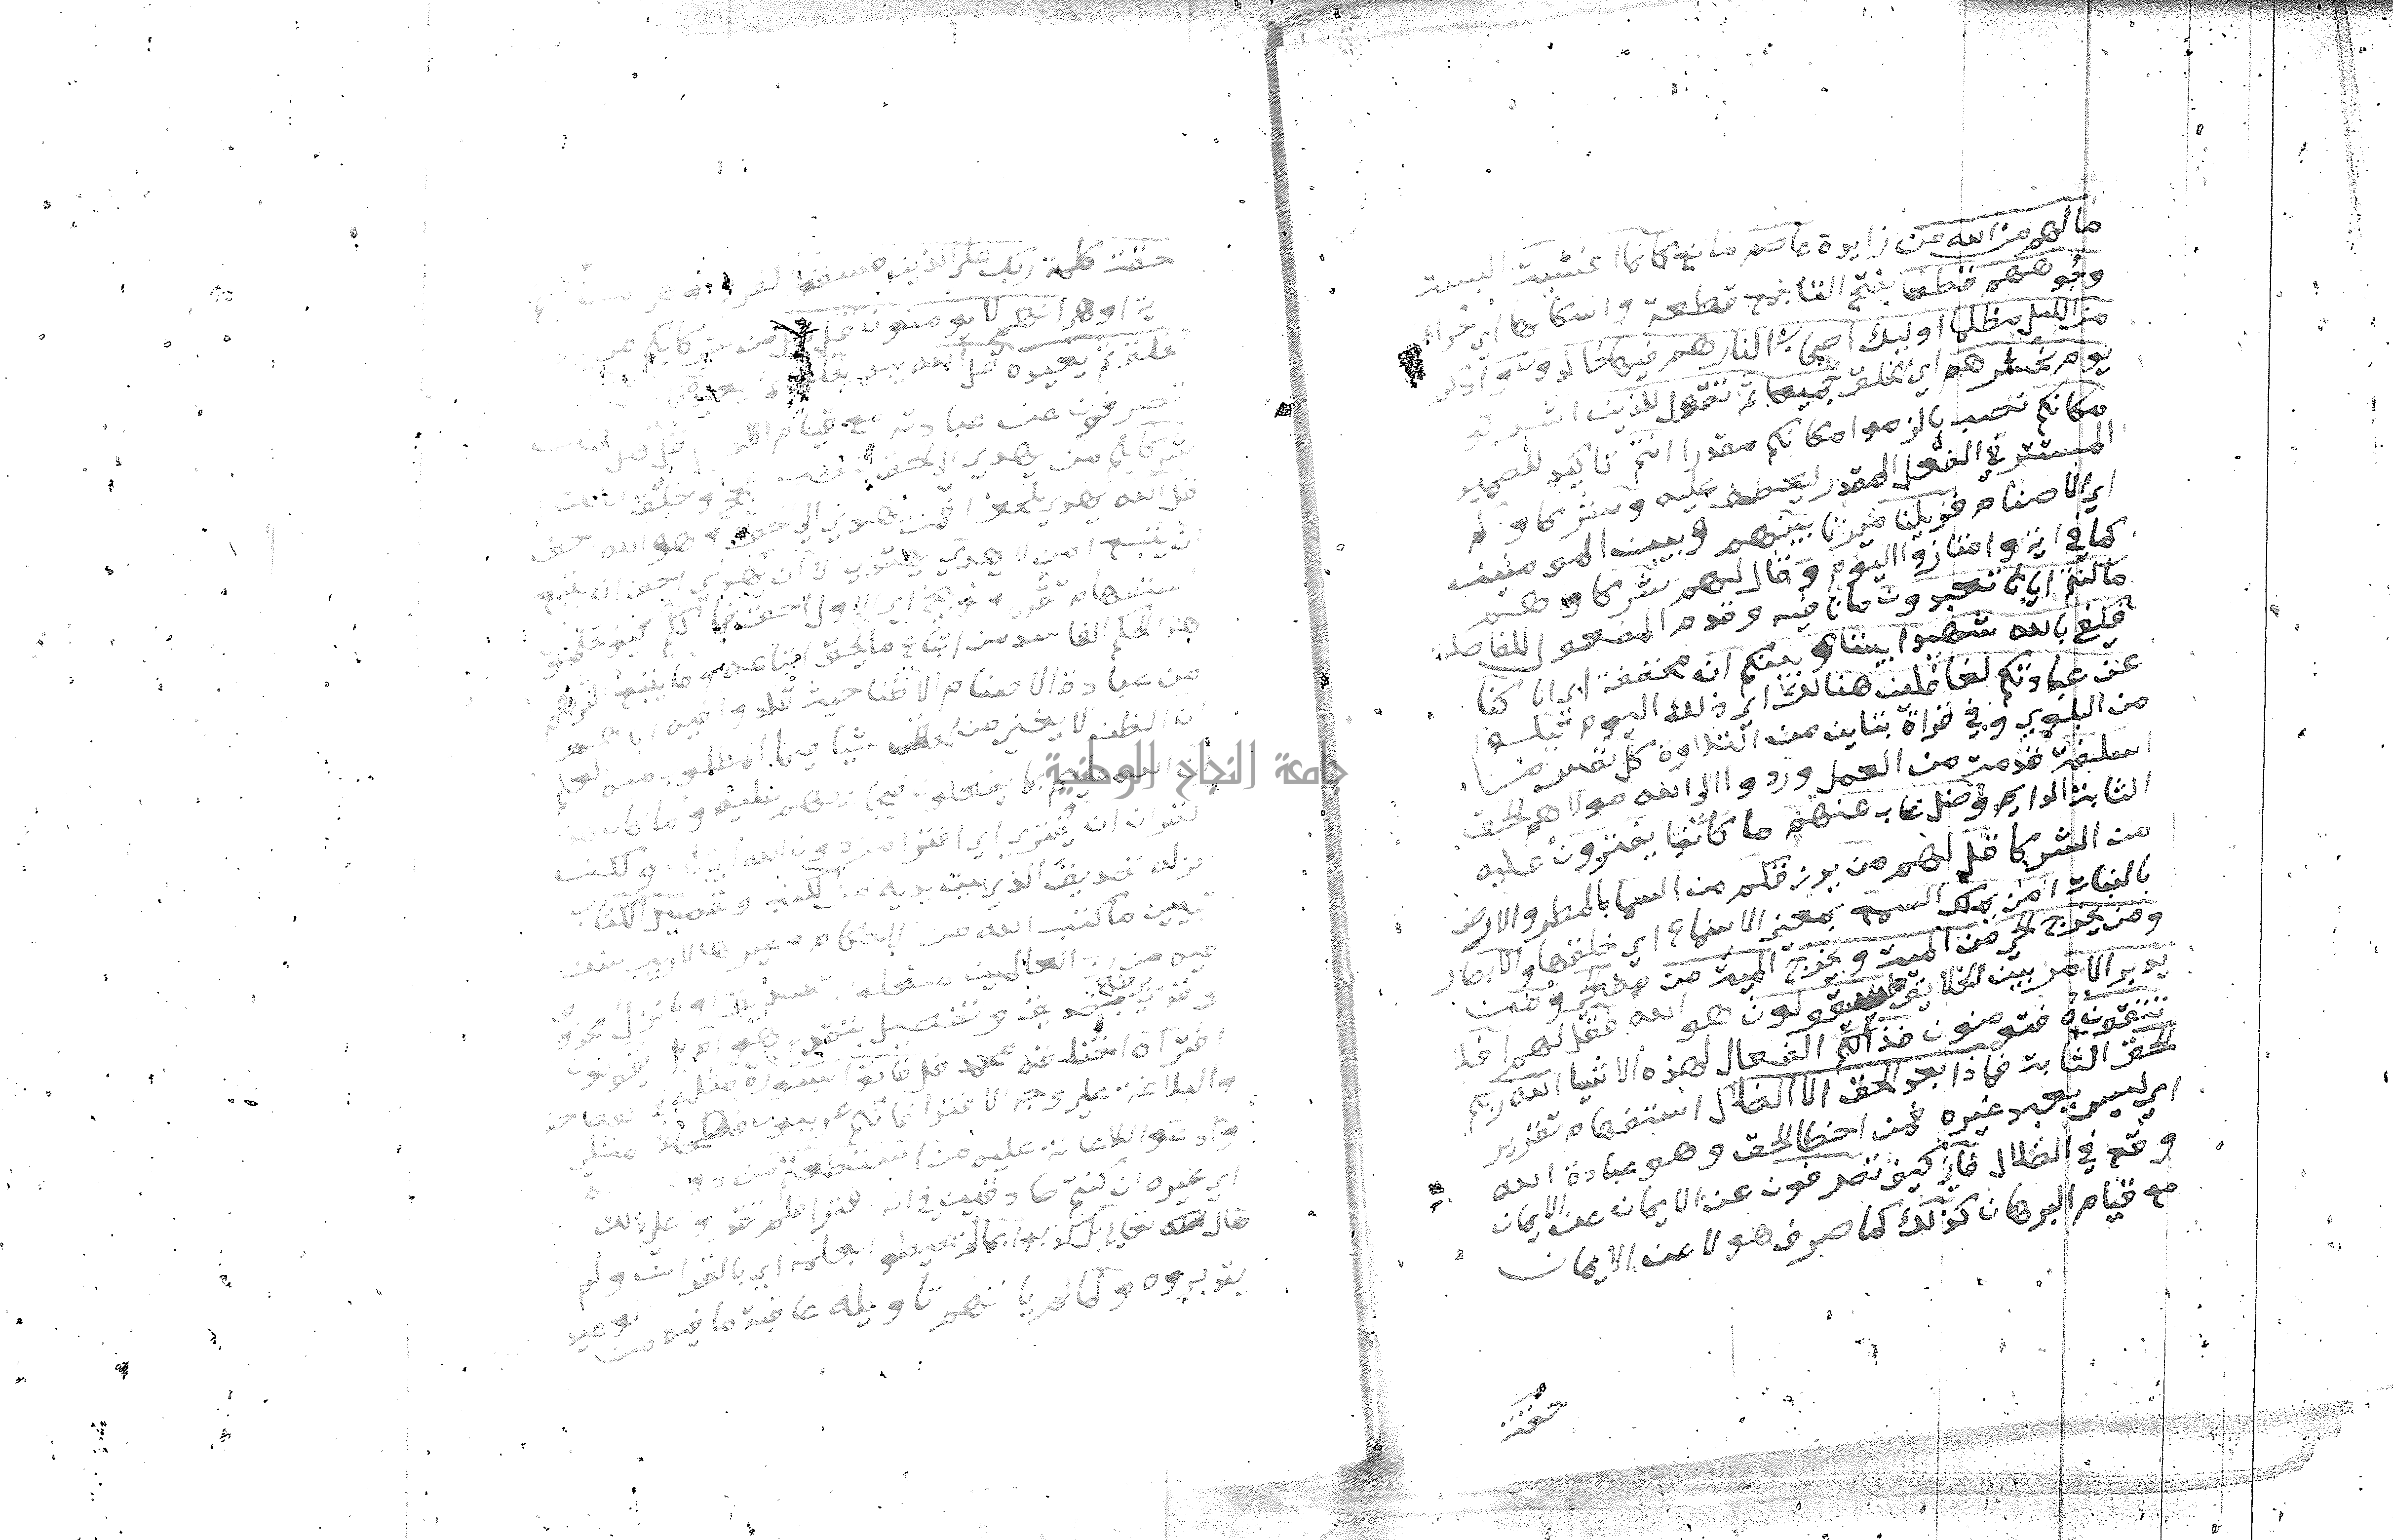 ما لهم من الله من زايدة عاصم مانع كانما اغشيت البست
وجوههم قطعا بفتح الطا جمع قطعة واسكانها اي جزاء
من الليل مظلما اوليك اصحاب النار هم فيها خالدون واذكر
يوم نحشرهم اي الخلق جميعا ثم نقول للذين اشركو
مكانكم نصب بالزموا مكانكم مقدرا انتم تاكيد للضمير
المستتر في الفعل المقدر ليعطف عليه وشركاوكم
اي الاصنام فزيلنا ميزنا بينهم وبين المومنين
كما في اية وامتازوا اليوم وقال لهم شركاوهم
ما كنتم ايانا تعبدون ما نافيه وقدم المفعول للفاصلة
فكفى بالله شهيدا بيننا وبينكم ان مخففة اي انا كنا
عن عبادتكم لغافلين هنالك اي ذلك اليوم تبلوا
من البلوي وفي قراة بتاين من التلاوة كل نفس ما
اسلفت قدمت من العمل وردوا الى الله مولاهم الحق
الثابت الدايم وضل غاب عنهم ما كانوا يفترون عليه
من الشركا قل لهم من يرزقكم من السما بالمطر والارض
بالنبات امن يملك السمع بمعنى الاسماع اي خلقها والابصار
ومن يخرج الحي من الميت ويخرج الميت من الحي ومن
يدبر الامر بين الخلايق فسيقولون هو الله فقل لهم افلا
تتقونه فتومنون فذالكم الفعال لهذه الاشيا الله ربكم
الحق الثابت فماذا بعد الحق الا الضلال استفهام تقرير
اي ليس بعبد غيره فمن اخطا الحق وهو عبادة الله
وقع في الضلال فاني كيف تصرفون عن الايمان عن الايمان
مع قيام البرهان كذلك كما صرف هولا عن الايمان
حقت
حقت كلمة ربك على الذين فسقوا كفروا وهي
اوهي انهم لا يومنون قل هل من شركايكم من
الخلق ثم يعيده قل الله يبدا
تصرفون عن عبادته مع قيام قل هل من
شركايكم من يهدي الى الحق بنصب الحجج وخلق
قل الله يهدي للحق افمن يهدي الى الحق وهو الله احق
ان يتبع امن لا يهدي يهتدي الا ان يهدى احق ان يتبع
استفهام تقرير وتوبيخ اي الاول احق فما لكم كيف تحكمون
هذا الحكم الفاسد من اتباع ما لا يحق اتباعه وما يتبع اكثرهم
من عبادة الاصنام الا ظنا حيث قلدوا فيه اباهم
ان الظن لا يغني من الحق شيا فيما المطلوب منه العلم
ان الله عليم بما يفعلون فيجازيهم عليه وما كان هذا
القران ان يفترى اي افترا من دون الله اي غيره ولكن
انزله تصديق الذي بين يديه من الكتب وتفصيل الكتاب
تبيين ما كتب الله من الاحكام وغيرها لا ريب شك
فيه من رب العالمين متعلق بتصديق او بانزل المحذوف
وقري برفع تصديق وتفصيل بتقدير هو ام بل يقولون
افتراه اختلقه محمد قل فاتوا بسورة مثله في الفصاحة
والبلاغة على وجه الافترا فانكم عربيون فصحاء مثلي
وادعوا للاعانة عليه من استطعتم من دون
اي غيره ان كنتم صادقين في انه افترا فلم تقدروا على ذلك
قال تعالى بل كذبوا بما لم يحيطوا بعلمه اي بالقران ولم
يتدبروه ولما لم ياتهم تاويله عاقبة ما فيه من الوعيد
جامعة النجاح الوطنية